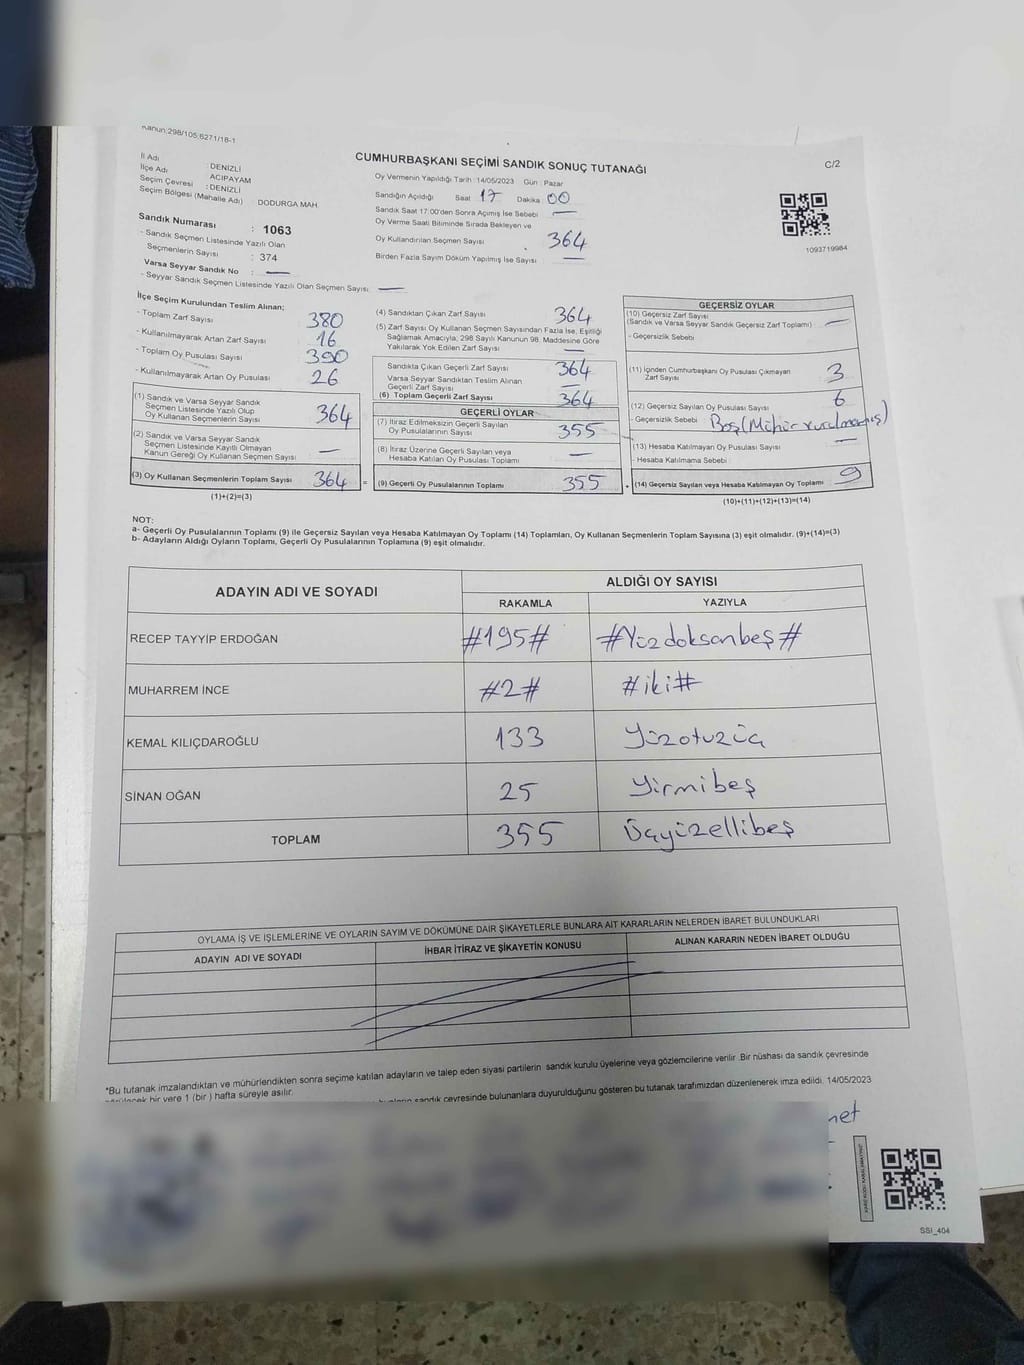 Kanun:298/105;6271/18-1
CUMHURBAŞKANI SEÇİMİ SANDIK SONUÇ TUTANAĞI
C/2
İl Adı : DENİZLİ
İlçe Adı : ACIPAYAM
Seçim Çevresi : DENİZLİ
Seçim Bölgesi (Mahalle Adı) DODURGA MAH.
Sandık Numarası : 1063
- Sandık Seçmen Listesinde Yazılı Olan
Seçmenlerin Sayısı : 374
Varsa Seyyar Sandık No : —
- Seyyar Sandık Seçmen Listesinde Yazılı Olan Seçmen Sayısı: —
Oy Vermenin Yapıldığı Tarih :14/05/2023 Gün : Pazar
Sandığın Açıldığı Saat 17 Dakika 00
Sandık Saat 17:00'den Sonra Açımış İse Sebebi —
Oy Verme Saati Bitiminde Sırada Bekleyen ve
Oy Kullandırılan Seçmen Sayısı . 364
Birden Fazla Sayım Döküm Yapılmış İse Sayısı —
1093719984
İlçe Seçim Kurulundan Teslim Alınan;
- Toplam Zarf Sayısı 380
- Kullanılmayarak Artan Zarf Sayısı 16
- Toplam Oy Pusulası Sayısı 390
- Kullanılmayarak Artan Oy Pusulası 26
(1) Sandık ve Varsa Seyyar Sandık
Seçmen Listesinde Yazılı Olup
Oy Kullanan Seçmenlerin Sayısı 364
(2) Sandık ve Varsa Seyyar Sandık
Seçmen Listesinde Kayıtlı Olmayan
Kanun Gereği Oy Kullanan Seçmen Sayısı —
(3) Oy Kullanan Seçmenlerin Toplam Sayısı 364 =
(1)+(2)=(3)
(4) Sandıktan Çıkan Zarf Sayısı 364
(5) Zarf Sayısı Oy Kullanan Seçmen Sayısından Fazla İse, Eşitliği
Sağlamak Amacıyla, 298 Sayılı Kanunun 98. Maddesine Göre
Yakılarak Yok Edilen Zarf Sayısı —
Sandıkta Çıkan Geçerli Zarf Sayısı 364
Varsa Seyyar Sandıktan Teslim Alınan
Geçerli Zarf Sayısı —
(6) Toplam Geçerli Zarf Sayısı 364
GEÇERLİ OYLAR
(7) İtiraz Edilmeksizin Geçerli Sayılan
Oy Pusulalarının Sayısı 355
(8) İtiraz Üzerine Geçerli Sayılan veya
Hesaba Katılan Oy Pusulası Toplamı —
(9) Geçerli Oy Pusulalarının Toplamı 355 +
GEÇERSİZ OYLAR
(10) Geçersiz Zarf Sayısı
(Sandık ve Varsa Seyyar Sandık Geçersiz Zarf Toplamı) —
- Geçersizlik Sebebi
(11) İçinden Cumhurbaşkanı Oy Pusulası Çıkmayan
Zarf Sayısı 3
(12) Geçersiz Sayılan Oy Pusulası Sayısı 6
- Geçersizlik Sebebi Boş(Mühür vurulmamış)
(13) Hesaba Katılmayan Oy Pusulası Sayısı —
- Hesaba Katılmama Sebebi
(14) Geçersiz Sayılan veya Hesaba Katılmayan Oy Toplamı 9
(10)+(11)+(12)+(13)=(14)
NOT:
a- Geçerli Oy Pusulalarının Toplamı (9) ile Geçersiz Sayılan veya Hesaba Katılmayan Oy Toplamı (14) Toplamları, Oy Kullanan Seçmenlerin Toplam Sayısına (3) eşit olmalıdır. (9)+(14)=(3)
b- Adayların Aldığı Oyların Toplamı, Geçerli Oy Pusulalarının Toplamına (9) eşit olmalıdır.
ADAYIN ADI VE SOYADI
ALDIĞI OY SAYISI
RAKAMLA YAZIYLA
RECEP TAYYİP ERDOĞAN #195# #Yüzdoksanbeş#
MUHARREM İNCE #2# #iki#
KEMAL KILIÇDAROĞLU 133 Yüzotuzüç
SİNAN OĞAN 25 Yirmibeş
TOPLAM 355 Üçyüzellibeş
OYLAMA İŞ VE İŞLEMLERİNE VE OYLARIN SAYIM VE DÖKÜMÜNE DAİR ŞİKAYETLERLE BUNLARA AİT KARARLARIN NELERDEN İBARET BULUNDUKLARI
ADAYIN ADI VE SOYADI İHBAR İTİRAZ VE ŞİKAYETİN KONUSU ALINAN KARARIN NEDEN İBARET OLDUĞU
*Bu tutanak imzalandıktan ve mühürlendikten sonra seçime katılan adayların ve talep eden siyasi partilerin sandık kurulu üyelerine veya gözlemcilerine verilir .Bir nüshası da sandık çevresinde
görülecek bir yere 1 (bir ) hafta süreyle asılır.
sandık çevresinde bulunanlara duyurulduğunu gösteren bu tutanak tarafımızdan düzenlenerek imza edildi. 14/05/2023
SSI_404